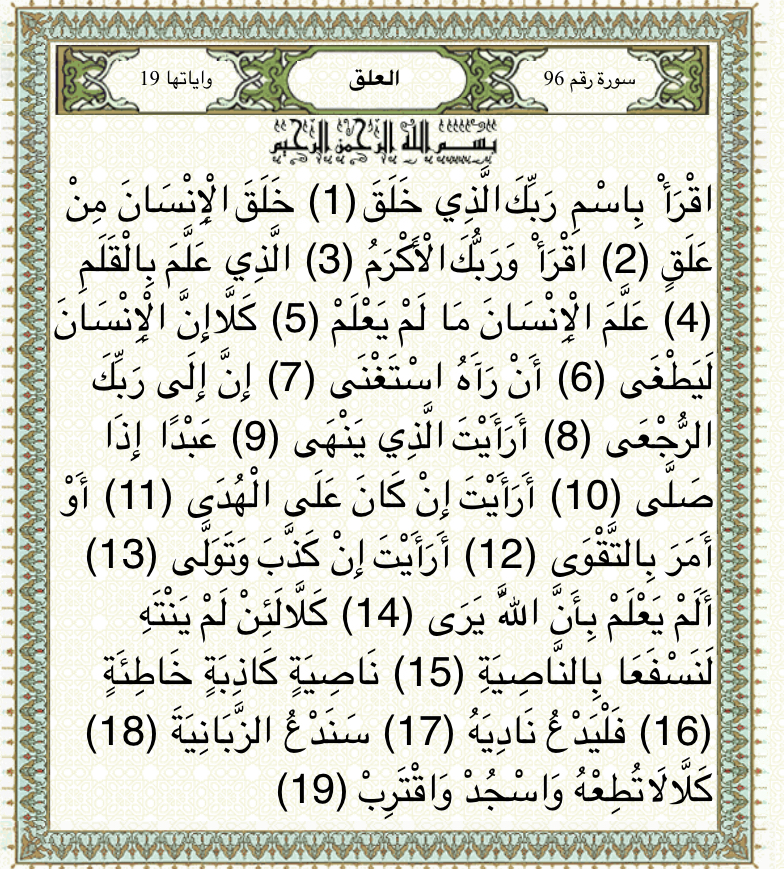 سورة رقم 96 العلق واياتها 19
بسم الله الرحمن الرحيم
اقْرَأْ بِاسْمِ رَبِّكَ الَّذِي خَلَقَ (1) خَلَقَ الْإِنْسَانَ مِنْ
عَلَقٍ (2) اقْرَأْ وَرَبُّكَ الْأَكْرَمُ (3) الَّذِي عَلَّمَ بِالْقَلَمِ
(4) عَلَّمَ الْإِنْسَانَ مَا لَمْ يَعْلَمْ (5) كَلَّا إِنَّ الْإِنْسَانَ
لَيَطْغَى (6) أَنْ رَآهُ اسْتَغْنَى (7) إِنَّ إِلَى رَبِّكَ
الرُّجْعَى (8) أَرَأَيْتَ الَّذِي يَنْهَى (9) عَبْدًا إِذَا
صَلَّى (10) أَرَأَيْتَ إِنْ كَانَ عَلَى الْهُدَى (11) أَوْ
أَمَرَ بِالتَّقْوَى (12) أَرَأَيْتَ إِنْ كَذَّبَ وَتَوَلَّى (13)
أَلَمْ يَعْلَمْ بِأَنَّ اللَّهَ يَرَى (14) كَلَّا لَئِنْ لَمْ يَنْتَهِ
لَنَسْفَعَا بِالنَّاصِيَةِ (15) نَاصِيَةٍ كَاذِبَةٍ خَاطِئَةٍ
(16) فَلْيَدْعُ نَادِيَهُ (17) سَنَدْعُ الزَّبَانِيَةَ (18)
كَلَّا لَا تُطِعْهُ وَاسْجُدْ وَاقْتَرِبْ (19)